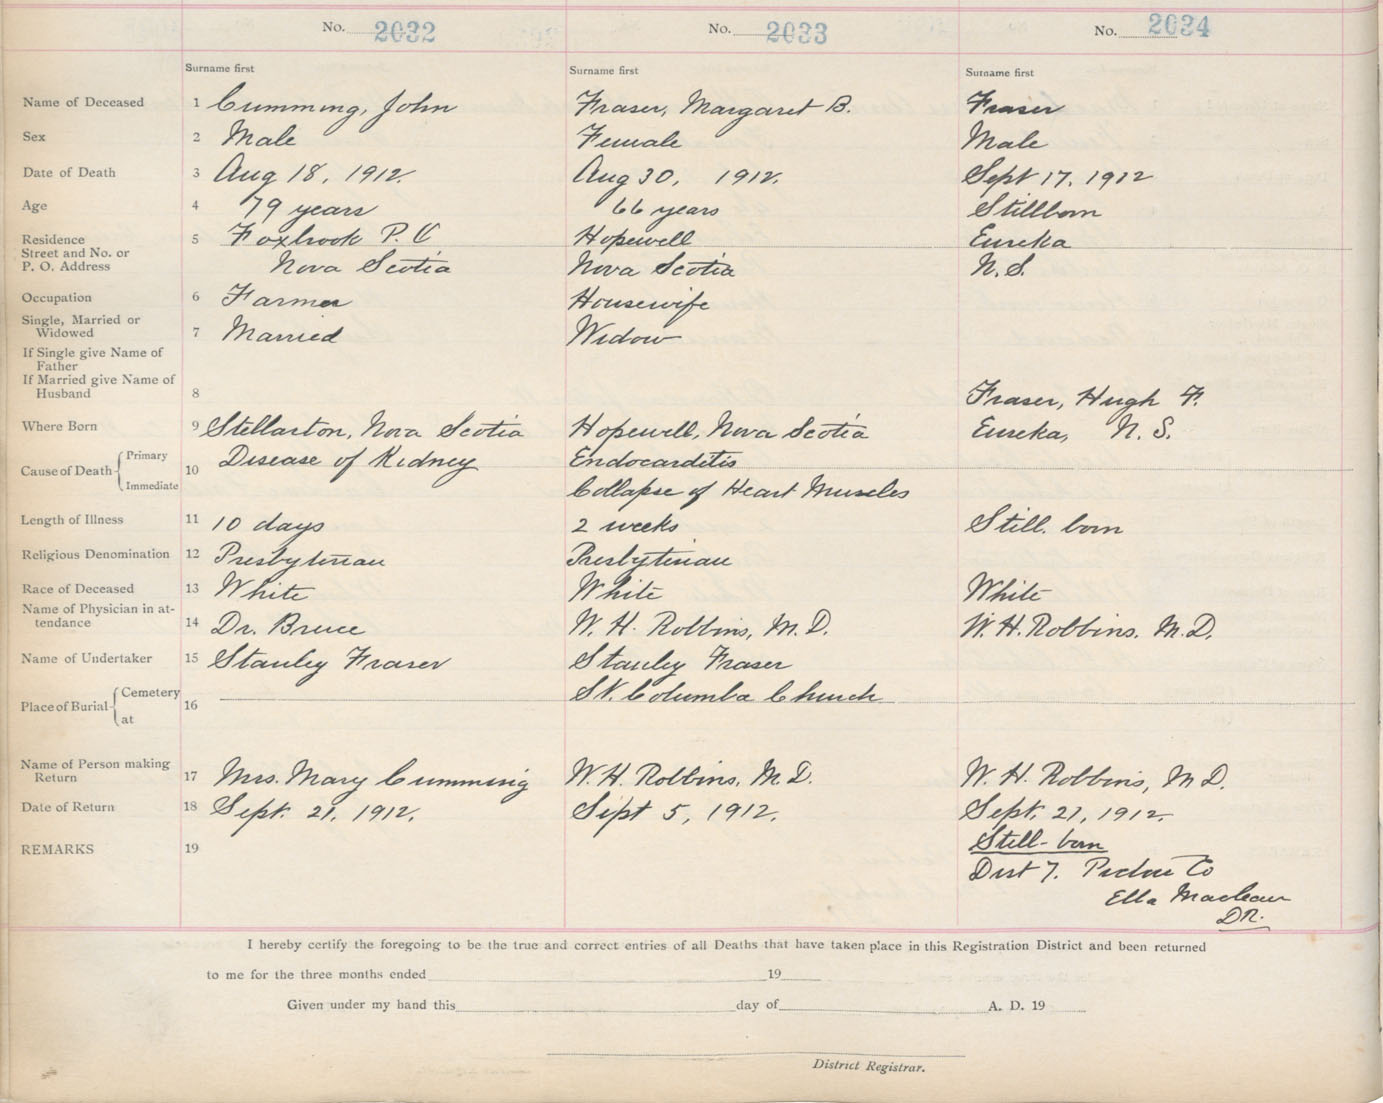 No. 2032 No. 2033 No. 2034
Surname first Surname first Surname first
Name of Deceased 1 Cumming, John Fraser, Margaret B. Fraser
Sex 2 Male Female Male
Date of Death 3 Aug 18, 1912. Aug 30, 1912. Sept 17, 1912
Age 4 79 years 66 years Stillborn
Residence 5 Foxbrook P. O Hopewell Eureka
Street and No. or
P. O. Address Nova Scotia Nova Scotia N. S.
Occupation 6 Farmer Housewife
Single, Married or
Widowed 7 Married Widow
If Single give Name of
Father
If Married give Name of
Husband 8 Fraser, Hugh F.
Where Born 9 Stellarton, Nova Scotia Hopewell, Nova Scotia Eureka, N. S.
Cause of Death Primary 10 Disease of Kidney Endocarditis
Immediate Collapse of Heart Muscles
Length of Illness 11 10 days 2 weeks Still. born
Religious Denomination 12 Presbyterian Presbyterian
Race of Deceased 13 White White White
Name of Physician in at-
tendance 14 Dr. Bruce W. H. Robbins, M. D. W. H. Robbins. M. D.
Name of Undertaker 15 Stanley Fraser Stanley Fraser
Place of Burial Cemetery 16 St. Columba Church
at
Name of Person making
Return 17 Mrs. Mary Cumming W. H. Robbins, M. D. W. H. Robbins, M D.
Date of Return 18 Sept. 21, 1912. Sept 5, 1912. Sept. 21, 1912.
REMARKS 19 Still-born
Dist 7. Pictou Co
Ella Maclean
DR.
I hereby certify the foregoing to be the true and correct entries of all Deaths that have taken place in this Registration District and been returned
to me for the three months ended 19
Given under my hand this day of A. D. 19
District Registrar.